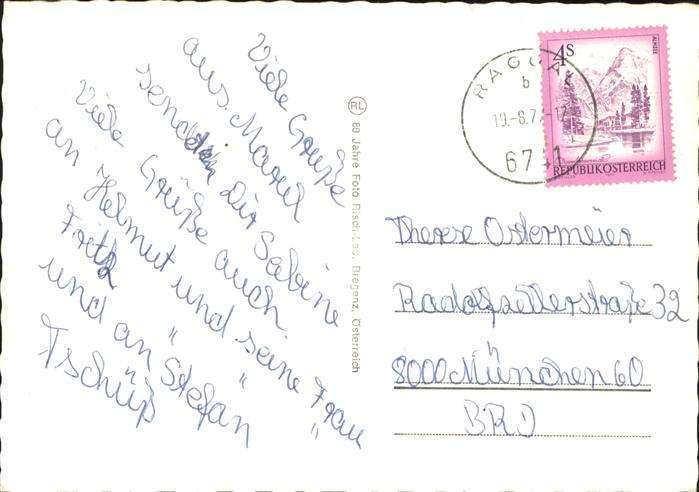 Viele Grüße
aus Marul
senden Dir Sabine
Viele Grüße auch
an Helmut und seine Frau
Fritz " " "
und an Stefan
Tschüß
RL 80 Jahre Foto Risch-Lau, Bregenz, Österreich
RAGGAL
b
19.-8.7
6741
4S
ALMSEE
REPUBLIK ÖSTERREICH
Therese Ostermeier
Radolfzellerstraße 32
8000 München 60
BRD